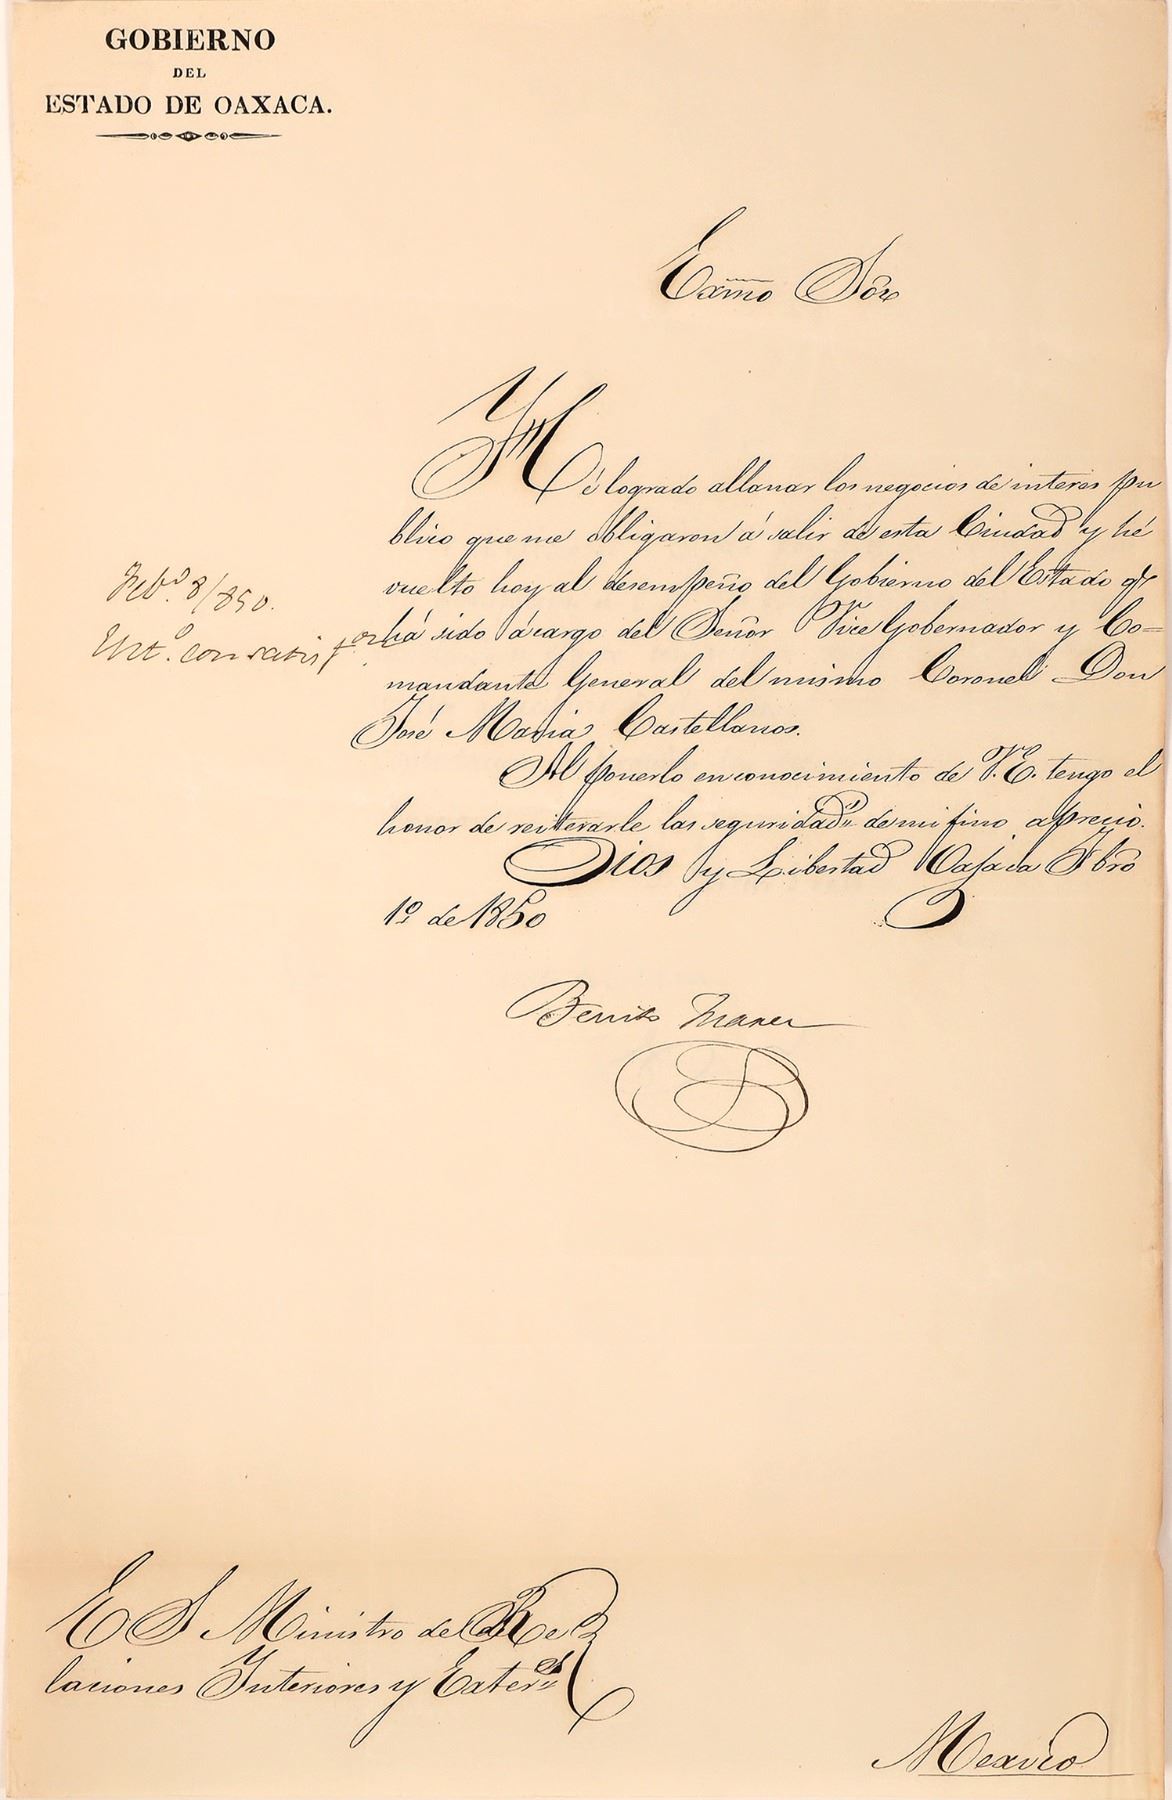 GOBIERNO
DEL
ESTADO DE OAXACA.
Exmo Sôr
Hé logrado allanar los negocios de interes pu
blico que me obligaron á salir de esta Ciudad y hé
vuelto hoy al desempeño del Gobierno del Estado qe
há sido á cargo del Señor Vice Gobernador y Co=
mandante General del mismo Coronel Don
José Maria Castellanos.
Al ponerlo en conocimiento de V.E. tengo el
honor de reiterarle las seguridads de mi fino aprecio.
Dios y Libertad Oajaca Fbro
1º de 1850
Febº 8/850.
Entº. con satisfon
Benito Juarez
E S Ministro de Re
laciones Interiores y Exters
Mexico